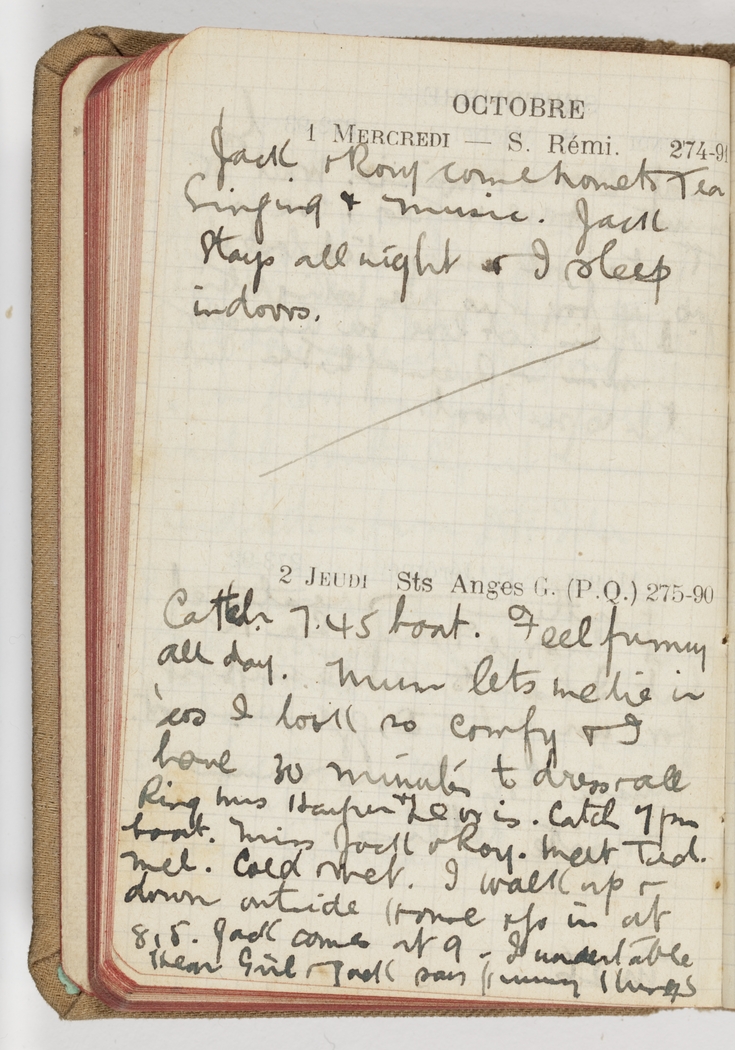 OCTOBRE
1 MERCREDI — S. Rémi. 274-91
Jack & Rory come home to Tea
Singing & music. Jack
stays all night & I sleep
indoors.
2 JEUDI Sts Anges G. (P.Q.) 275-90
Catch 7.45 boat. Feel funny
all day. Mum lets me lie in
'cos I look so comfy & I
have 30 minutes to dress & all
Ring Mrs Harper & Lewis. Catch 7 pm
boat. Miss Jack & Roy. Meet Ted.
Mel. Cold & wet. I walk up &
down outside home in at
8.15. Jack comes at 9. I under table
Hear Girl & Jack says funny things